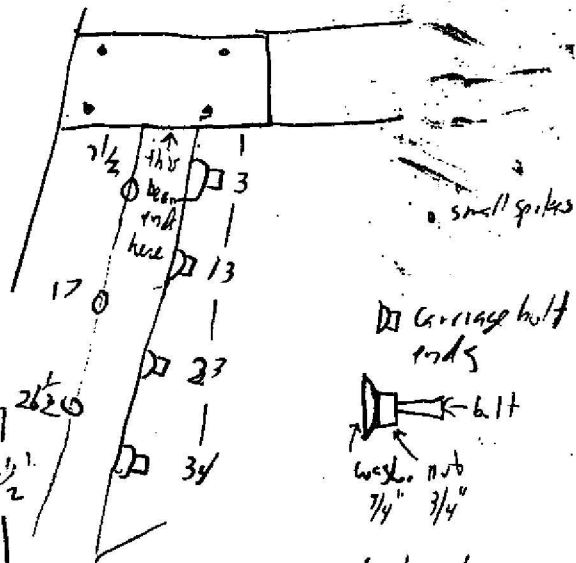 7½
this
beam
ends
here
3
13
23
34
17
26½
small spikes
carriage bolt
ends
bolt
washer nut
3/4"